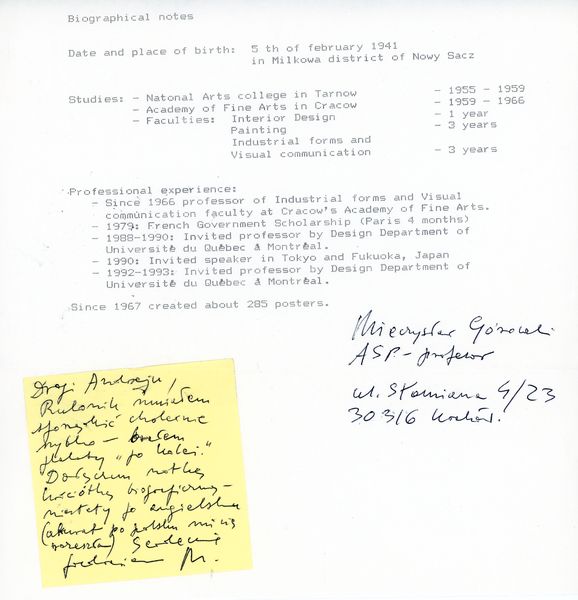 Biographical notes
Date and place of birth: 5 th of february 1941
in Milkowa district of Nowy Sacz
Studies: - Natonal Arts college in Tarnow - 1955 - 1959
- Academy of Fine Arts in Cracow - 1959 - 1966
- Faculties: Interior Design - 1 year
Painting - 3 years
Industrial forms and
Visual communication - 3 years
Professional experience:
- Since 1966 professor of Industrial forms and Visual
communication faculty at Cracow's Academy of Fine Arts.
- 1979: French Government Scholarship (Paris 4 months)
- 1988-1990: Invited professor by Design Department of
Université du Québec à Montréal.
- 1990: Invited speaker in Tokyo and Fukuoka, Japan
- 1992-1993: Invited professor by Design Department of
Université du Québec à Montréal.
Since 1967 created about 285 posters.
Mieczysław Górowski
ASP - profesor
ul. Słomiana 4/23
30316 Kraków.
Drogi Andrzeju,
Rulonik musiałem
sporządzić cholernie
szybko - brałem
plakaty "po kolei."
Dołączam notkę
króciótką biograficzną -
niestety po angielsku
(akurat po polsku mi się
wyszła) Serdecznie
pozdrawiam M.